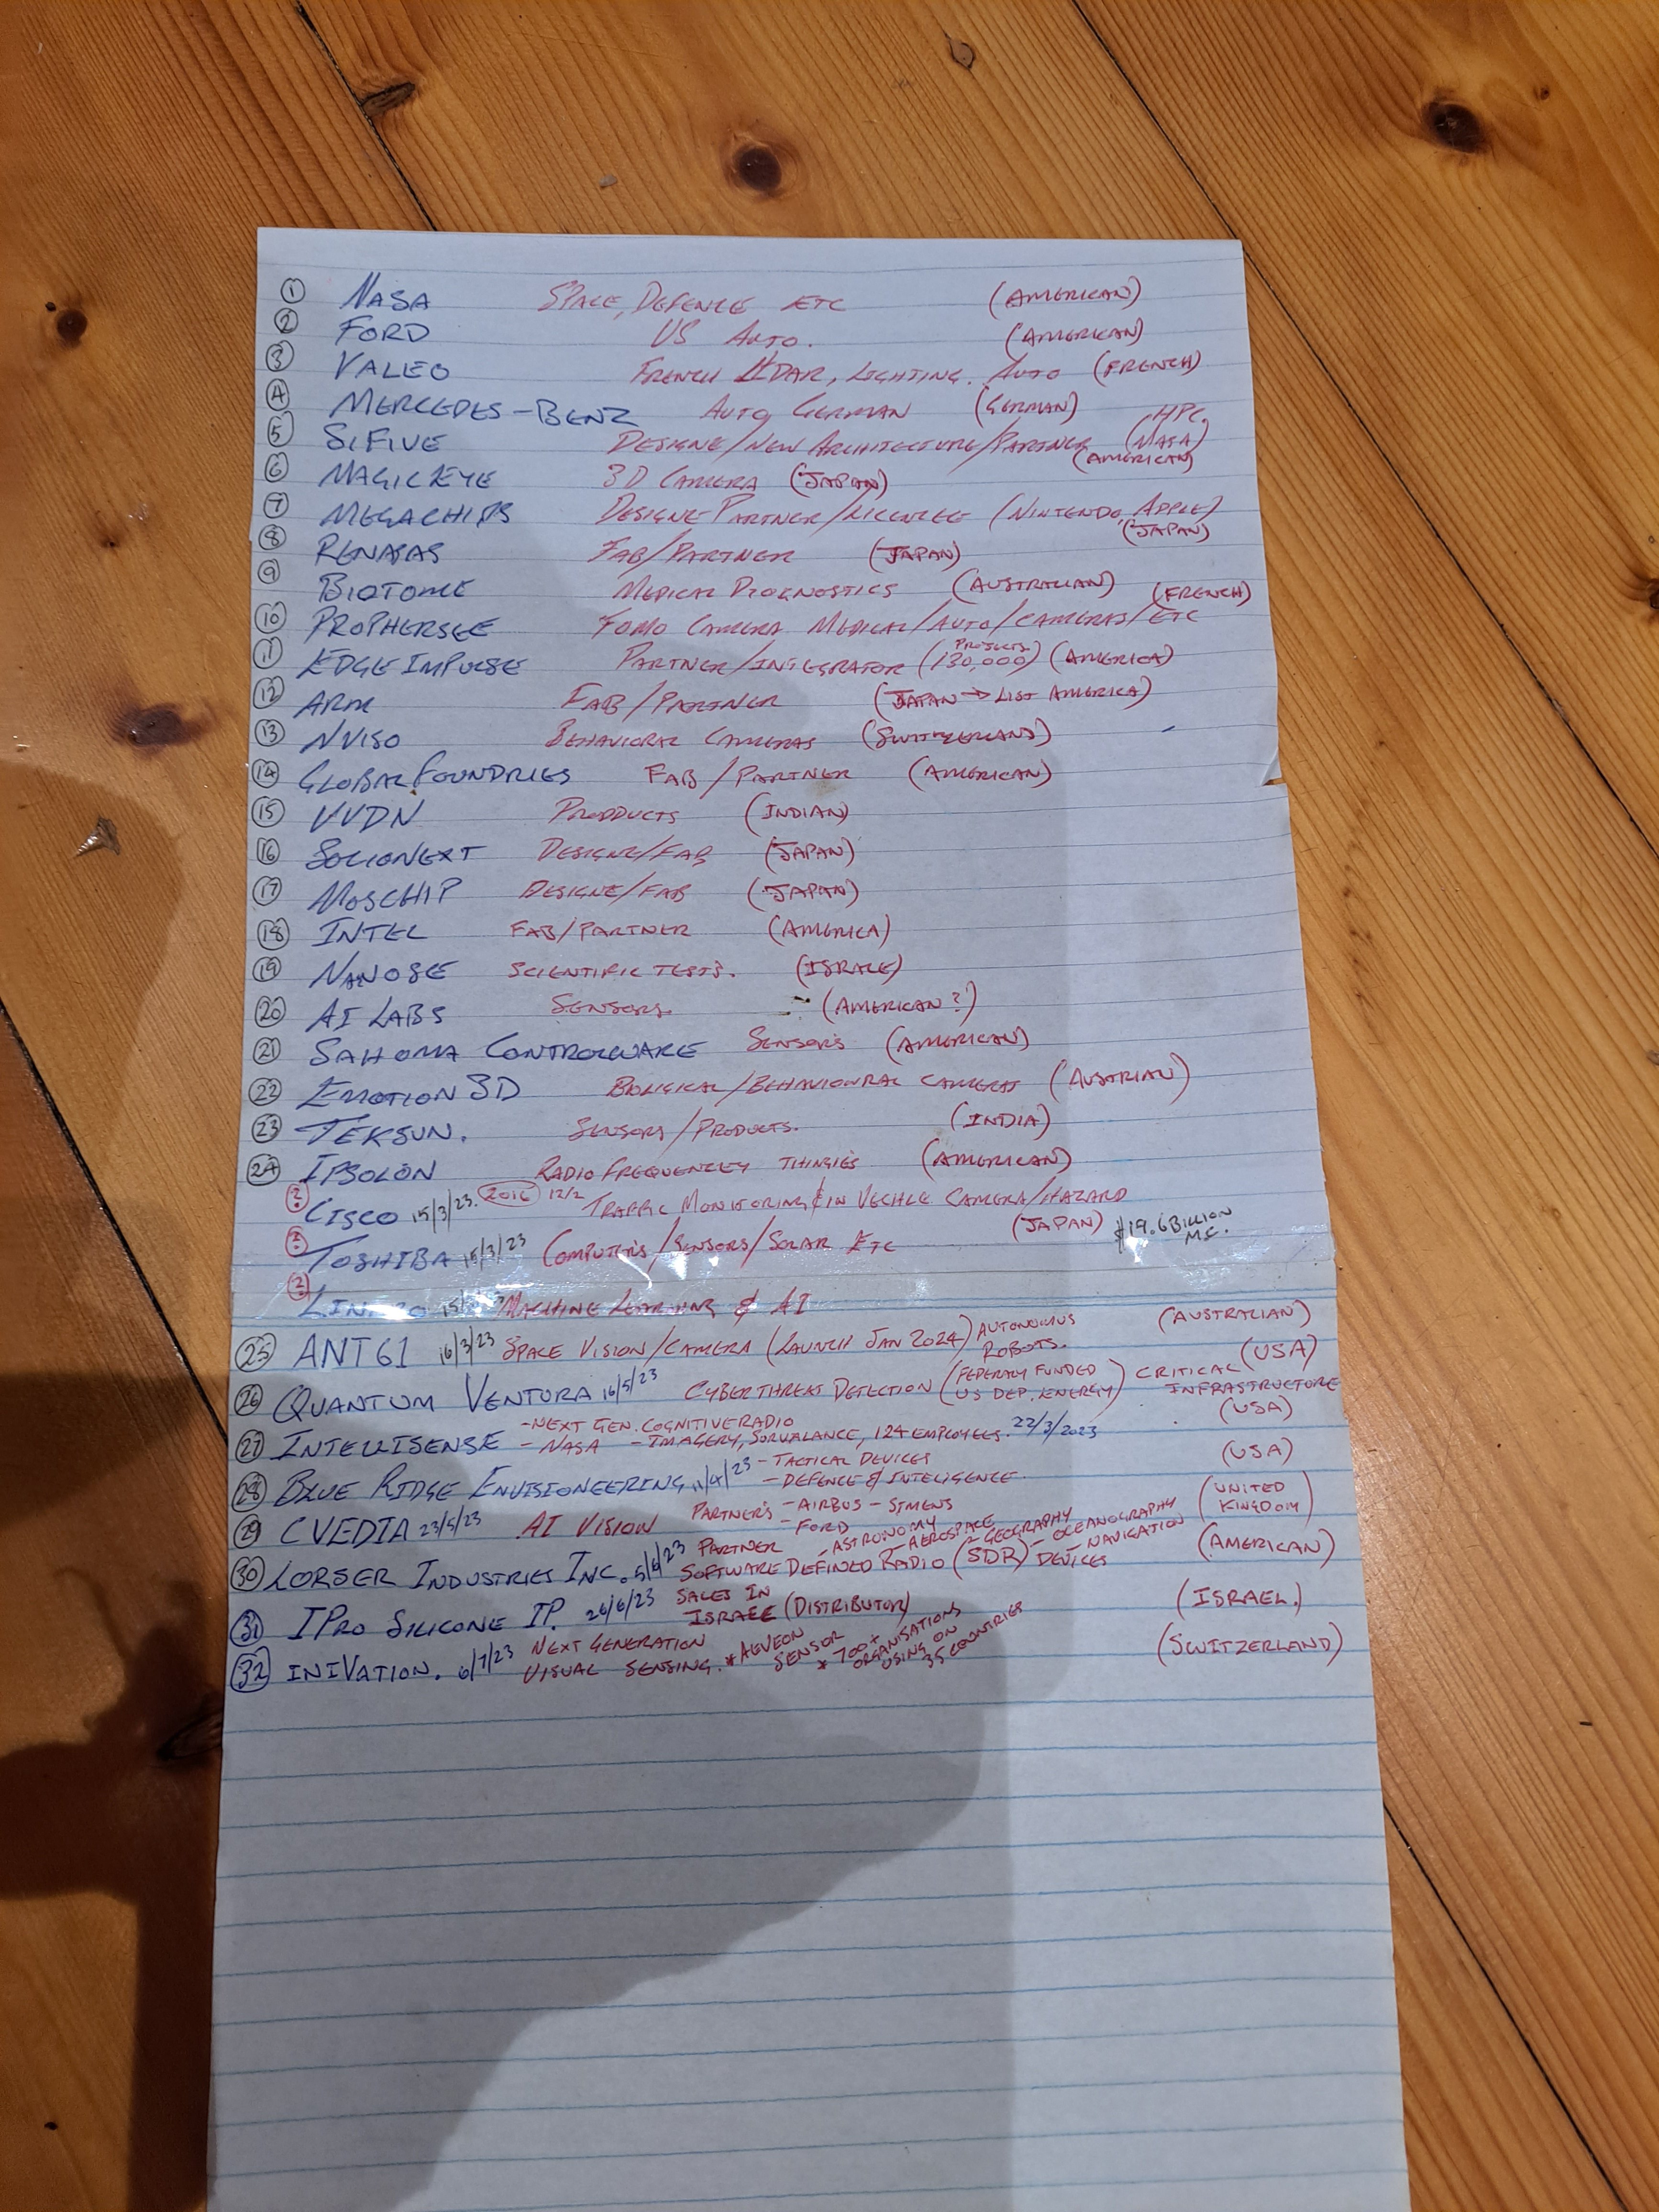 ① NASA SPACE, DEFENCE ETC (AMERICAN)
② FORD US AUTO. (AMERICAN)
③ VALEO FRENCH LIDAR, LIGHTING. AUTO (FRENCH)
④ MERCEDES-BENZ AUTO GERMAN (GERMAN)
HPC.
⑤ SIFIVE DESIGNE/NEW ARCHITECTURE/PARTNER (NASA)
(AMERICAN)
⑥ MAGICKEYE 3D CAMERA (JAPAN)
⑦ MEGACHIPS DESIGNE PARTNER/LICENCEE (NINTENDO, APPLE)
(JAPAN)
⑧ RENASAS FAB/PARTNER (JAPAN)
⑨ BIOTOME MEDICAL DIOGNOSTICS (AUSTRALIAN)
(FRENCH)
⑩ PROPHERSEE FOMO CAMERA MEDICAL/AUTO/CAMERAS/ETC
PROJECTS
11 EDGE IMPULSE PARTNER/INTEGRATOR (130,000) (AMERICA)
⑫ ARM FAB/PARTNER (JAPAN → LIST AMERICA)
⑬ NVISO BEHAVIORAL CAMERAS (SWITZERLAND)
⑭ GLOBAL FOUNDRIES FAB/PARTNER (AMERICAN)
⑮ VVDN PRODUCTS (INDIAN)
⑯ SOCIONEXT DESIGNE/FAB (JAPAN)
⑰ MOSCHIP DESIGNE/FAB (JAPAN)
⑱ INTEL FAB/PARTNER (AMERICA)
⑲ NANOSE SCIENTIFIC TESTS. (ISRALE)
⑳ AI LABS SENSORS. (AMERICAN?)
㉑ SAHOMA CONTROLWARE SENSORS (AMERICAN)
㉒ EMOTION 3D BIOLIGICAL/BEHAVIOURAL CAMERAS (AUSTRIAN)
㉓ TEKSUN. SENSORS/PRODUCTS. (INDIA)
㉔ IPSOLON RADIO FREQUENCEY THINGIES (AMERICAN)
? CISCO 15/3/23. 2016 12/2 TRAFFIC MONITORING & IN VECHLE CAMERA/HAZARD
? TOSHIBA 15/3/23 COMPUTERS/SENSORS/SOLAR ETC (JAPAN) $19.6 BILLION M.C.
? MACHINE LEARNING & AI
㉕ ANT 61 16/3/23 SPACE VISION/CAMERA (LAUNCH JAN 2024) AUTONOMUS ROBOTS. (AUSTRALIAN)
㉖ QUANTUM VENTURA 16/5/23 CYBERTHREAT DETECTION (FEDERALY FUNDED US DEP. ENERGY) CRITICAL INFRASTRUCTURE (USA)
㉗ INTELLISENSE - NEXT GEN. COGNITIVE RADIO
- NASA - IMAGERY, SURVALANCE, 124 EMPLOYEES. 22/3/2023 (USA)
㉘ BLUE RIDGE ENVISIONEERING 11/4/23 - TACTICAL DEVICES
- DEFENCE & INTELIGENCE. (USA)
㉙ CVEDIA 23/5/23 AI VISION PARTNER'S - AIRBUS - SIMENS
- FORD (UNITED KINGDOM)
㉚ LORSER INDUSTRIES INC. 5/6/23 PARTNER - ASTRONOMY - AEROSPACE - GEOGRAPHY - OCEANOGRAPHY
SOFTWARE DEFINED RADIO (SDR) DEVICES - NAVIGATION (AMERICAN)
㉛ IPRO SILICONE IP. 26/6/23 SALES IN
ISRAEL (DISTRIBUTOR) (ISRAEL.)
㉜ INIVATION. 6/7/23 NEXT GENERATION
VISUAL SENSING. * AEVEON SENSOR * 700+ ORGANISATIONS USING ON 35 COUNTRIES (SWITZERLAND)